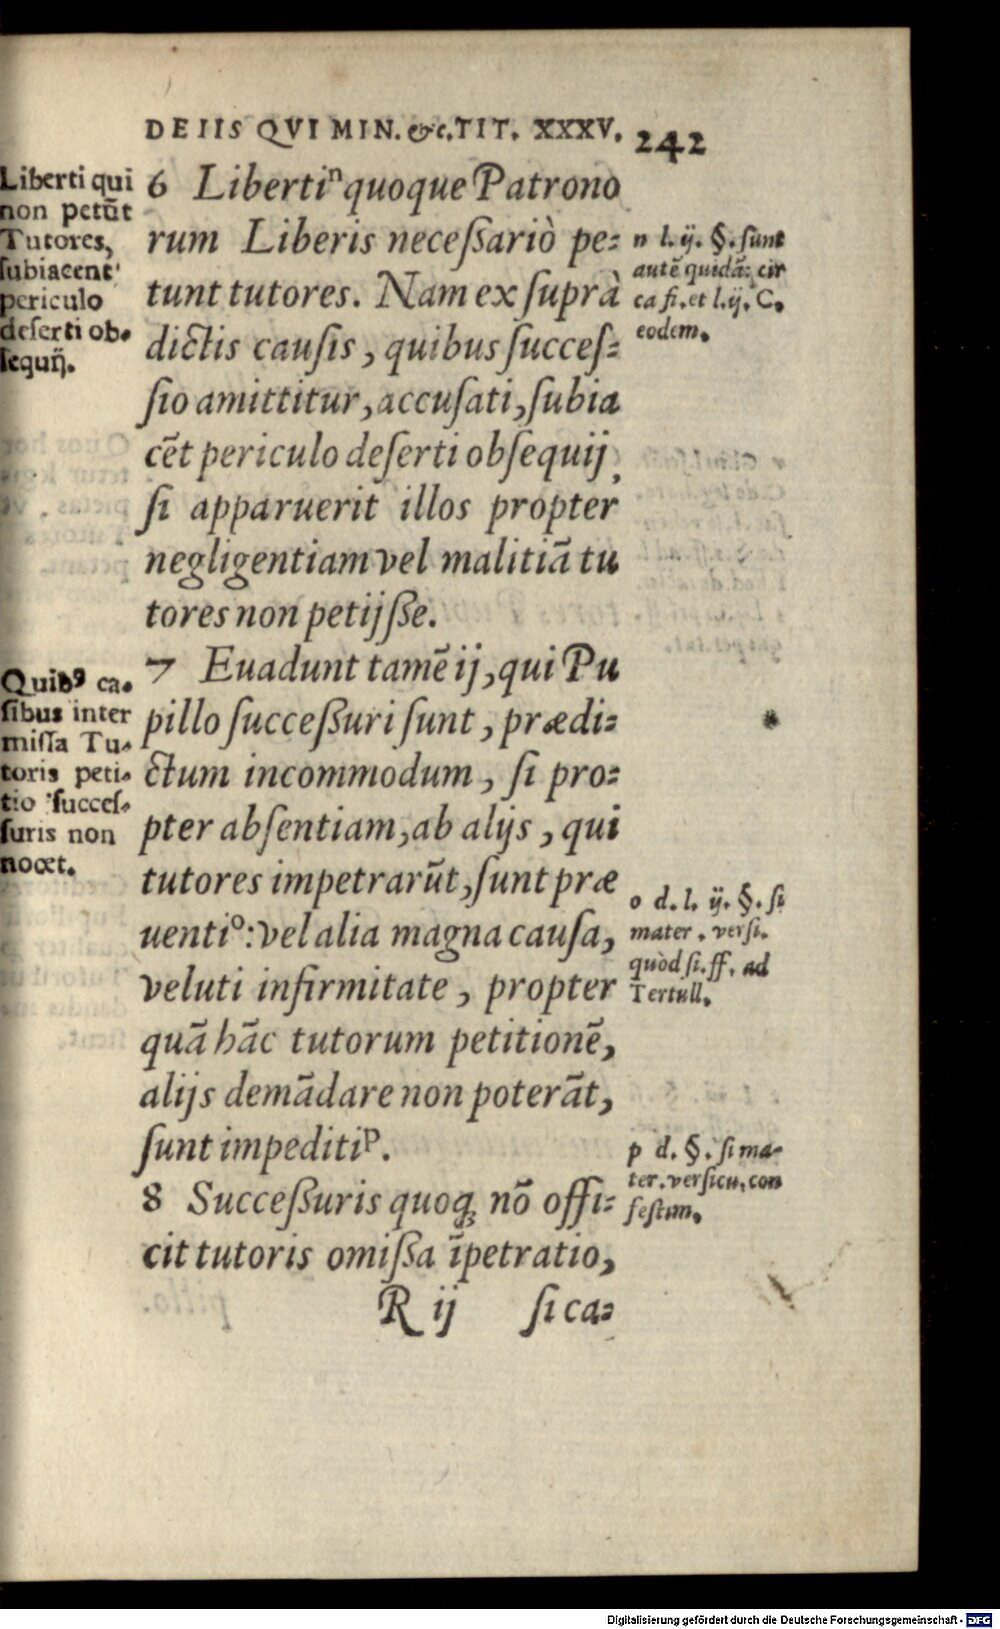 DE IIS QVI MIN. &c. TIT. XXXV. 242
Liberti qui
non petūt
Tutores,
subiacent
periculo
deserti ob-
sequij.
6 Libertiⁿ quoque Patrono
rum Liberis neceßariò pe-
tunt tutores. Nam ex suprà
dictis causis, quibus succes-
sio amittitur, accusati, subia
cēt periculo deserti obsequij,
si apparuerit illos propter
negligentiam vel malitiā tu
tores non petijße.
n l. ij. §. sunt
autē quidā: cir
ca fi. et l. ij. C.
eodem.
Quibꝰ ca-
sibus inter
missa Tu-
toris peti-
tio succes-
suris non
nocet.
7 Euadunt tamē ij, qui Pu
pillo succeßuri sunt, prædi-
ctum incommodum, si pro-
pter absentiam, ab alijs, qui
tutores impetrarūt, sunt præ
uentiº: vel alia magna causa,
veluti infirmitate, propter
quā hāc tutorum petitionē,
alijs demādare non poterāt,
sunt impeditiᵖ.
o d. l. ij. §. si
mater. versi.
quòd si. ff. ad
Tertull.
8 Succeßuris quoqꝫ nō offi-
cit tutoris omißa īpetratio,
p d. §. si ma-
ter. versicu. con
festim.
R ij si ca-
Digitalisierung gefördert durch die Deutsche Forschungsgemeinschaft - DFG